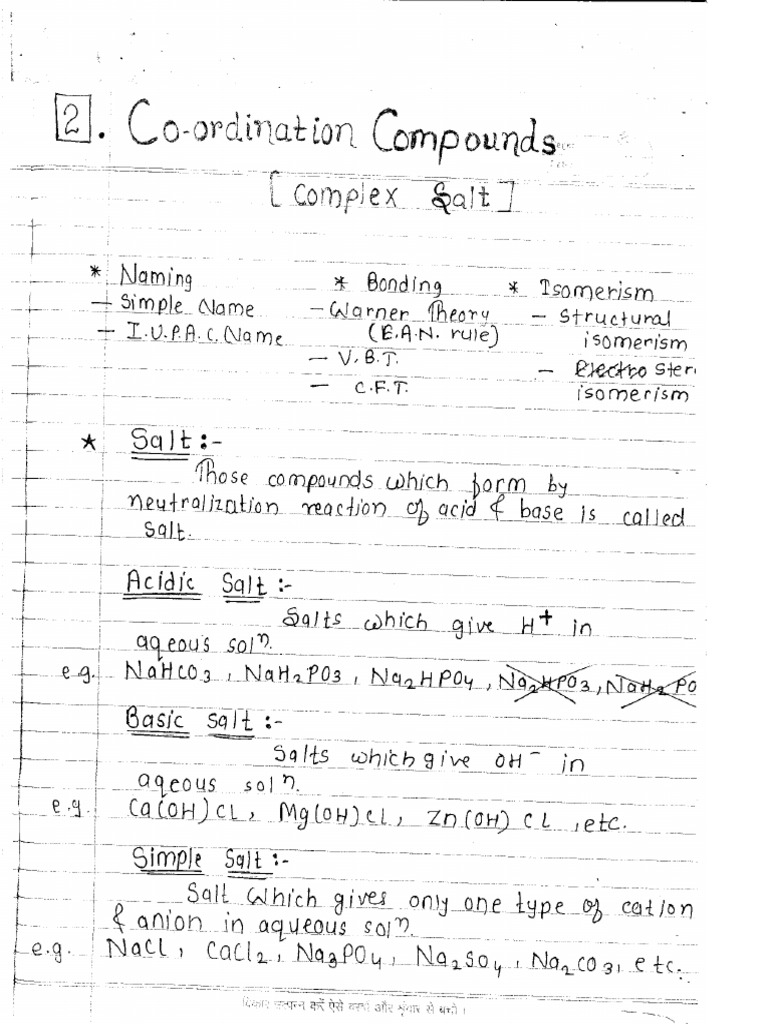 2. Co-ordination Compounds
[Complex Salt]
* Naming
– Simple Name
– I.U.P.A.C. Name
* Bonding
– Warner Theory
(E.A.N. rule)
– V.B.T.
– C.F.T.
* Isomerism
– Structural
isomerism
– Electro Ster
isomerism
* Salt :-
Those compounds which form by
neutralization reaction of acid & base is called
Salt.
Acidic Salt :-
Salts which give H+ in
aqeous solⁿ.
e.g. NaHCO3, NaH2PO3, Na2HPO4, Na2HPO3, NaH2PO
Basic salt :-
Salts which give OH⁻ in
aqeous solⁿ.
e.g. Ca(OH)CL, Mg(OH)Cl, Zn(OH)CL, etc.
Simple Salt :-
Salt which gives only one type of cation
& anion in aqueous solⁿ.
e.g. NaCl, CaCl2, Na3PO4, Na2SO4, Na2CO3, etc.
उत्पन्न करें ऐसे वस्त्रों और श्रृंगार से बचो।